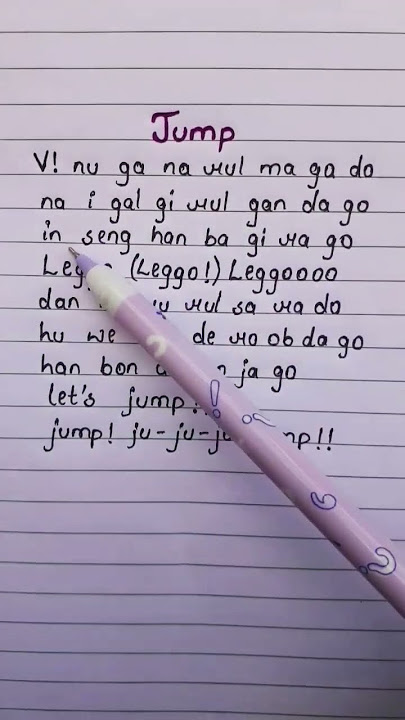 Jump
V! nu ga na mul ma ga do
na i gal gi mul gan da go
in seng han ba gi ra go
(Leggo!) Leggoooo
dan mul sa ra do
hu we de ro ob da go
han bon ja go
let's jump!
jump! ju-ju-